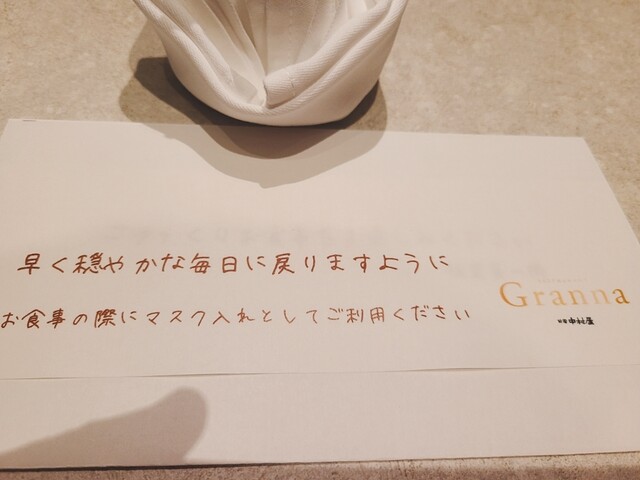 早く穏やかな毎日に戻りますように
お食事の際にマスク入れとしてご利用ください
Granna
新宿 中村屋